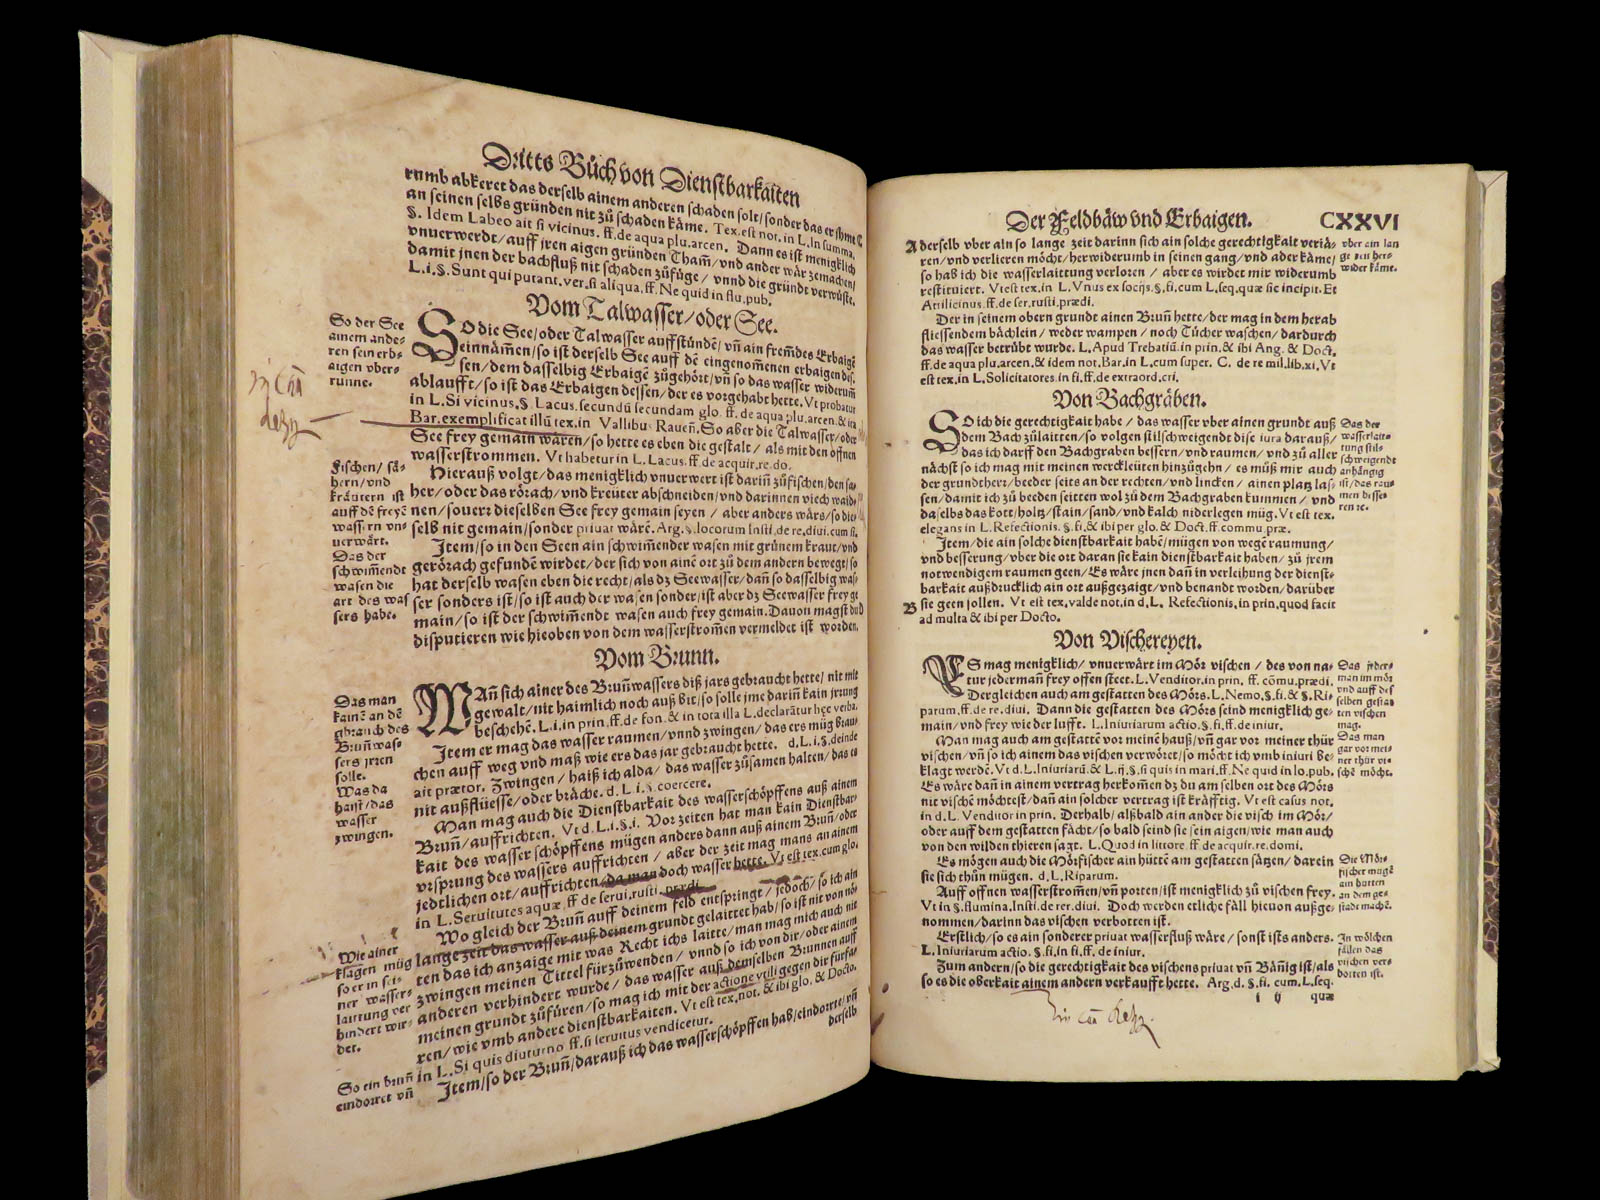 Dritts Bůch von Dienstbarkaiten
rumb abkeret das derselb ainem anderen schaden solt/sonder das er ihme
an seinen selbs gründen nit zů schaden käme. Tex.est not.in L.In summa,
§. Idem Labeo ait si vicinus. ff.de aqua plu.arcen. Dann es ist menigklich
vnuerwerdt/auff jren aigen gründen Tham̃/vnd ander wär zemachen/
damit jnen der bachfluß nit schaden zůfüge/ vnnd die gründt verwůste.
L.i.§.Sunt qui putant.ver.si aliqua.ff.Ne quid in flu.pub.
Vom Talwasser/oder See.
So der See
ainem ande-
ren sein erb-
aigen vber-
runne.
SO die See/oder Talwasser auffstündẽ/ vñ ain frem̃des Erbaigẽ
einnãmen/so ist derselb See auff dẽ eingenomenen erbaigen des-
sen/dem dasselbig Erbaigẽ zůgehört/vñ so das wasser widerum̃
ablaufft/so ist das Erbaigen dessen/der es vorgehabt hette. Vt probatur
in L.Si vicinus.§. Lacus.secundũ secundam glo. ff.de aqua plu.arcen.& ita
Bar.exemplificat illũ tex.in Vallibus Raueñ.So aber die Talwasser/oder
See frey gemain wären/so hette es eben die gestalt/ als mit den offnen
wasserstrommen. Vt habetur in L.Lacus.ff.de acquir.re.do.
Fischen/ sä-
hern/vnd
kräutern ist
auff dẽ freyẽ
wassern vn-
uerwärt.
Hierauß volgt/das menigklich vnuerwert ist dariñ zůfischen/den sa-
her/oder das rörach/vnd kreüter abschneiden/vnd darinnen viech waid-
nen/souerr dieselben See frey gemain seyen / aber anders wärs/so die-
selb nit gemain/sonder priuat wärẽ. Arg.§.locorum Insti.de re.diui.cum si.
Das der
schwim̃endt
wasen die
art des was
sers habe.
Item/so in den Seen ain schwim̃ender wasen mit grünem kraut/vnd
gerörach gefundẽ wirdet/der sich von ainẽ ort zů dem andern bewegt/so
hat derselb wasen eben die recht/als dz Seewasser/dañ so dasselbig was-
ser sonders ist/so ist auch der wasen sonder/ist aber dz Seewasser frey ge
main/so ist der schwim̃endt wasen auch frey gemain.Dauon magst du
disputieren wie hieoben von dem wasserstromen vermeldet ist worden.
Vom Brunn.
Das man
kainẽ an dẽ
gbrauch des
Bruñwas-
sers jrren
solle.
MAñ sich ainer des Bruñwassers diß jars gebraucht hette/ nit mit
gewalt/nit haimlich noch auß bit/so solle jme dariñ kain jrrung
beschehẽ. L.i.in prin.ff.de fon.& in tota illa L.declaratur hęc verba.
Was da
haist/das
wasser
zwingen.
Item er mag das wasser raumen/vnnd zwingen/das ers müg brau-
chen auff weg vnd maß wie ers das jar gebraucht hette. d.L.i.§.deinde
ait prætor. Zwingen/ haiß ich alda/ das wasser zůsamen halten/das es
nit außflüesse/oder bräche. d.L.i.§.coercere.
Man mag auch die Dienstbarkait des wasserschöpffens auß ainem
Bruñ/auffrichten. Vt d.L.i.§.i. Vor zeiten hat man kain Dienstbar-
kait des wasser schöpffens mügen anders dann auß ainem Bruñ/oder
vrsprung des wassers auffrichten / aber der zeit mag mans an ainem
jedtlichen ort/auffrichten/da man doch wasser hette. Vt est tex.cum glo.
in L.Seruitutes aquæ.ff de serui.rusti.prædi.
Wie ainer
klagen müg
so er in sei-
ner wasser-
laittung ver
hindert wir-
det.
Wo gleich der Bruñ auff deinem feld entspringt / jedoch/ so ich ain
lange zeit das wasser auß deinem grundt gelaittet hab/so ist nit von nö-
ten das ich anzaige mit was Recht ichs laitte/man mag mich auch nit
zwingen meinen Tittel fürzůwenden/ vnnd so ich von dir/oder ainem
anderen verhindert wurde/ das wasser auß demselben Brunnen auff
meinen grundt zůfüren/so mag ich mit der actione vtili gegen dir fürfa-
ren/wie vmb andere dienstbarkaiten. Vt est tex.not. & ibi glo. & Docto.
in L.Si quis diuturno ff.si seruitus vendicetur.
So ein bruñ
eindorret vñ
Item/so der Bruñ/darauß ich das wasserschöpffen hab/eindorrte/vñ
derselb
Der Feldbäw vnd Erbaigen. CXXVI
A derselb vber ain so lange zeit darinn sich ain solche gerechtigkait veriä-
ren/vnd verlieren möcht/herwiderumb in seinen gang/vnd ader käme/
so hab ich die wasserlaittung verloren / aber es wirdet mir widerumb
restituiert. Vt est tex.in L.Vnus ex socijs.§.fi.cum L.seq.quæ sic incipit.Et
Attilicinus.ff.de ser.rusti.prædi.
vber ain lan
ge zeit her-
wider käme.
Der in seinem obern grundt ainen Bruñ hette/der mag in dem herab
fliessendem bächlein/ weder wampen/ noch Tücher waschen/ dardurch
das wasser betrübt wurde. L.Apud Trebatiũ.in prin.& ibi Ang.& Doct.
ff.de aqua plu.arcen.& idem not.Bar.in L.cum super. C. de re mil.lib.xi.Vt
est tex.in L.Solicitatores.in fi.ff.de extraord.cri.
Von Bachgräben.
SO ich die gerechtigkait habe / das wasser vber ainen grundt auß
dem Bach zůlaitten/so volgen stilschweigendt dise iura darauß/
das ich darff den Bachgraben bessern/vnd raumen/ vnd zů aller
nächst so ich mag mit meinen werckleüten hinzůgehn / es můß mir auch
der grundtherr/beeder seits an der rechten/vnd lincken / ainen platz las-
sen/damit ich zů beeden seitten wol zů dem Bachgraben kummen / vnd
daselbs das kott/holtz/stain/sand/vnd kalch niderlegen müg. Vt est tex.
elegans in L.Refectionis.§.fi.& ibi per glo.& Doct.ff.commu.præ.
Das der
wasserlait-
tung stil-
schweigendt
anhängig
ist/das rau-
men besse-
ren ec.
Item/die ain solche dienstbarkait habẽ/mügen von wegẽ raumung/
vnd besserung/vber die ort daran sie kain dienstbarkait haben/ zů jrem
notwendigem raumen geen/Es wäre jnen dañ in verleihung der dienst-
barkait außdrucklich ain ort außgezaigt/vnd benandt worden/darüber
B sie geen sollen. Vt est tex.valde not.in d.L. Refectionis.in prin.quod facit
ad multa & ibi per Docto.
Von Vischereyen.
ES mag menigklich/ vnuerwärt im Mör vischen / des von na-
tur jederman̄ frey offen steet. L.Venditor.in prin. ff. cõmu.prædi.
Dergleichen auch am gestatten des Mörs.L.Nemo.§.fi.& §.Ri-
parum.ff.de re.diui. Dann die gestatten des Mörs seind menigklich ge-
main/vnd frey wie der lufft. L.Iniuriarum actio.§.fi.ff.de iniur.
Das jeder-
man im mör
vnd auff des
selben gesta-
ten vischen
mag.
Man mag auch am gestattẽ vor meinẽ hauß/vñ gar vor meiner thür
vischen/vñ so ich ainem das vischen verwöret/so möcht ich vmb iniuri be-
klagt werdẽ. Vt d.L.Iniuriarũ.& L.ij.§.si quis in mari.ff. Ne quid in lo.pub.
Es wäre dañ in ainem vertrag herkom̃en dz du am selben ort des Mörs
nit vischẽ möchtest/dañ ain solcher vertrag ist kräfftig. Vt est casus not.
in d.L. Venditor in prin. Derhalb/ alßbald ain ander die visch im Mör/
oder auff dem gestatten fächt/so bald seind sie sein aigen/wie man auch
von den wilden thieren sagt. L.Quod in littore.ff.de acquir.re.domi.
Das man
gar vor mei-
ner thür vi-
schẽ möcht.
Es mögen auch die Mörfischer ain hüttẽ am gestatten sätzen/ darein
sie sich thůn mügen. d.L.Riparum.
Die Mör-
fischer mügẽ
ain hutten
an dem ge-
stadt machẽ.
Auff offnen wasserstromen/vñ porten/ist menigklich zů vischen frey.
Vt in §.flumina.Insti.de rer.diui. Doch werden etliche fäll hieuon außge-
nommen/darinn das vischen verbotten ist.
Erstlich/so es ain sonderer priuat wasserfluß wäre/ sonst ists anders.
L.Iniuriarum actio.§.fi.in fi.ff.de iniur.
In wölchen
fällen das
vischen ver-
botten ist.
Zum andern/so die gerechtigkait des vischens priuat vñ Bañig ist/als
so es die oberkait ainem andern verkaufft hette. Arg.d.§.fi. cum.L.seq.
i ij quæ